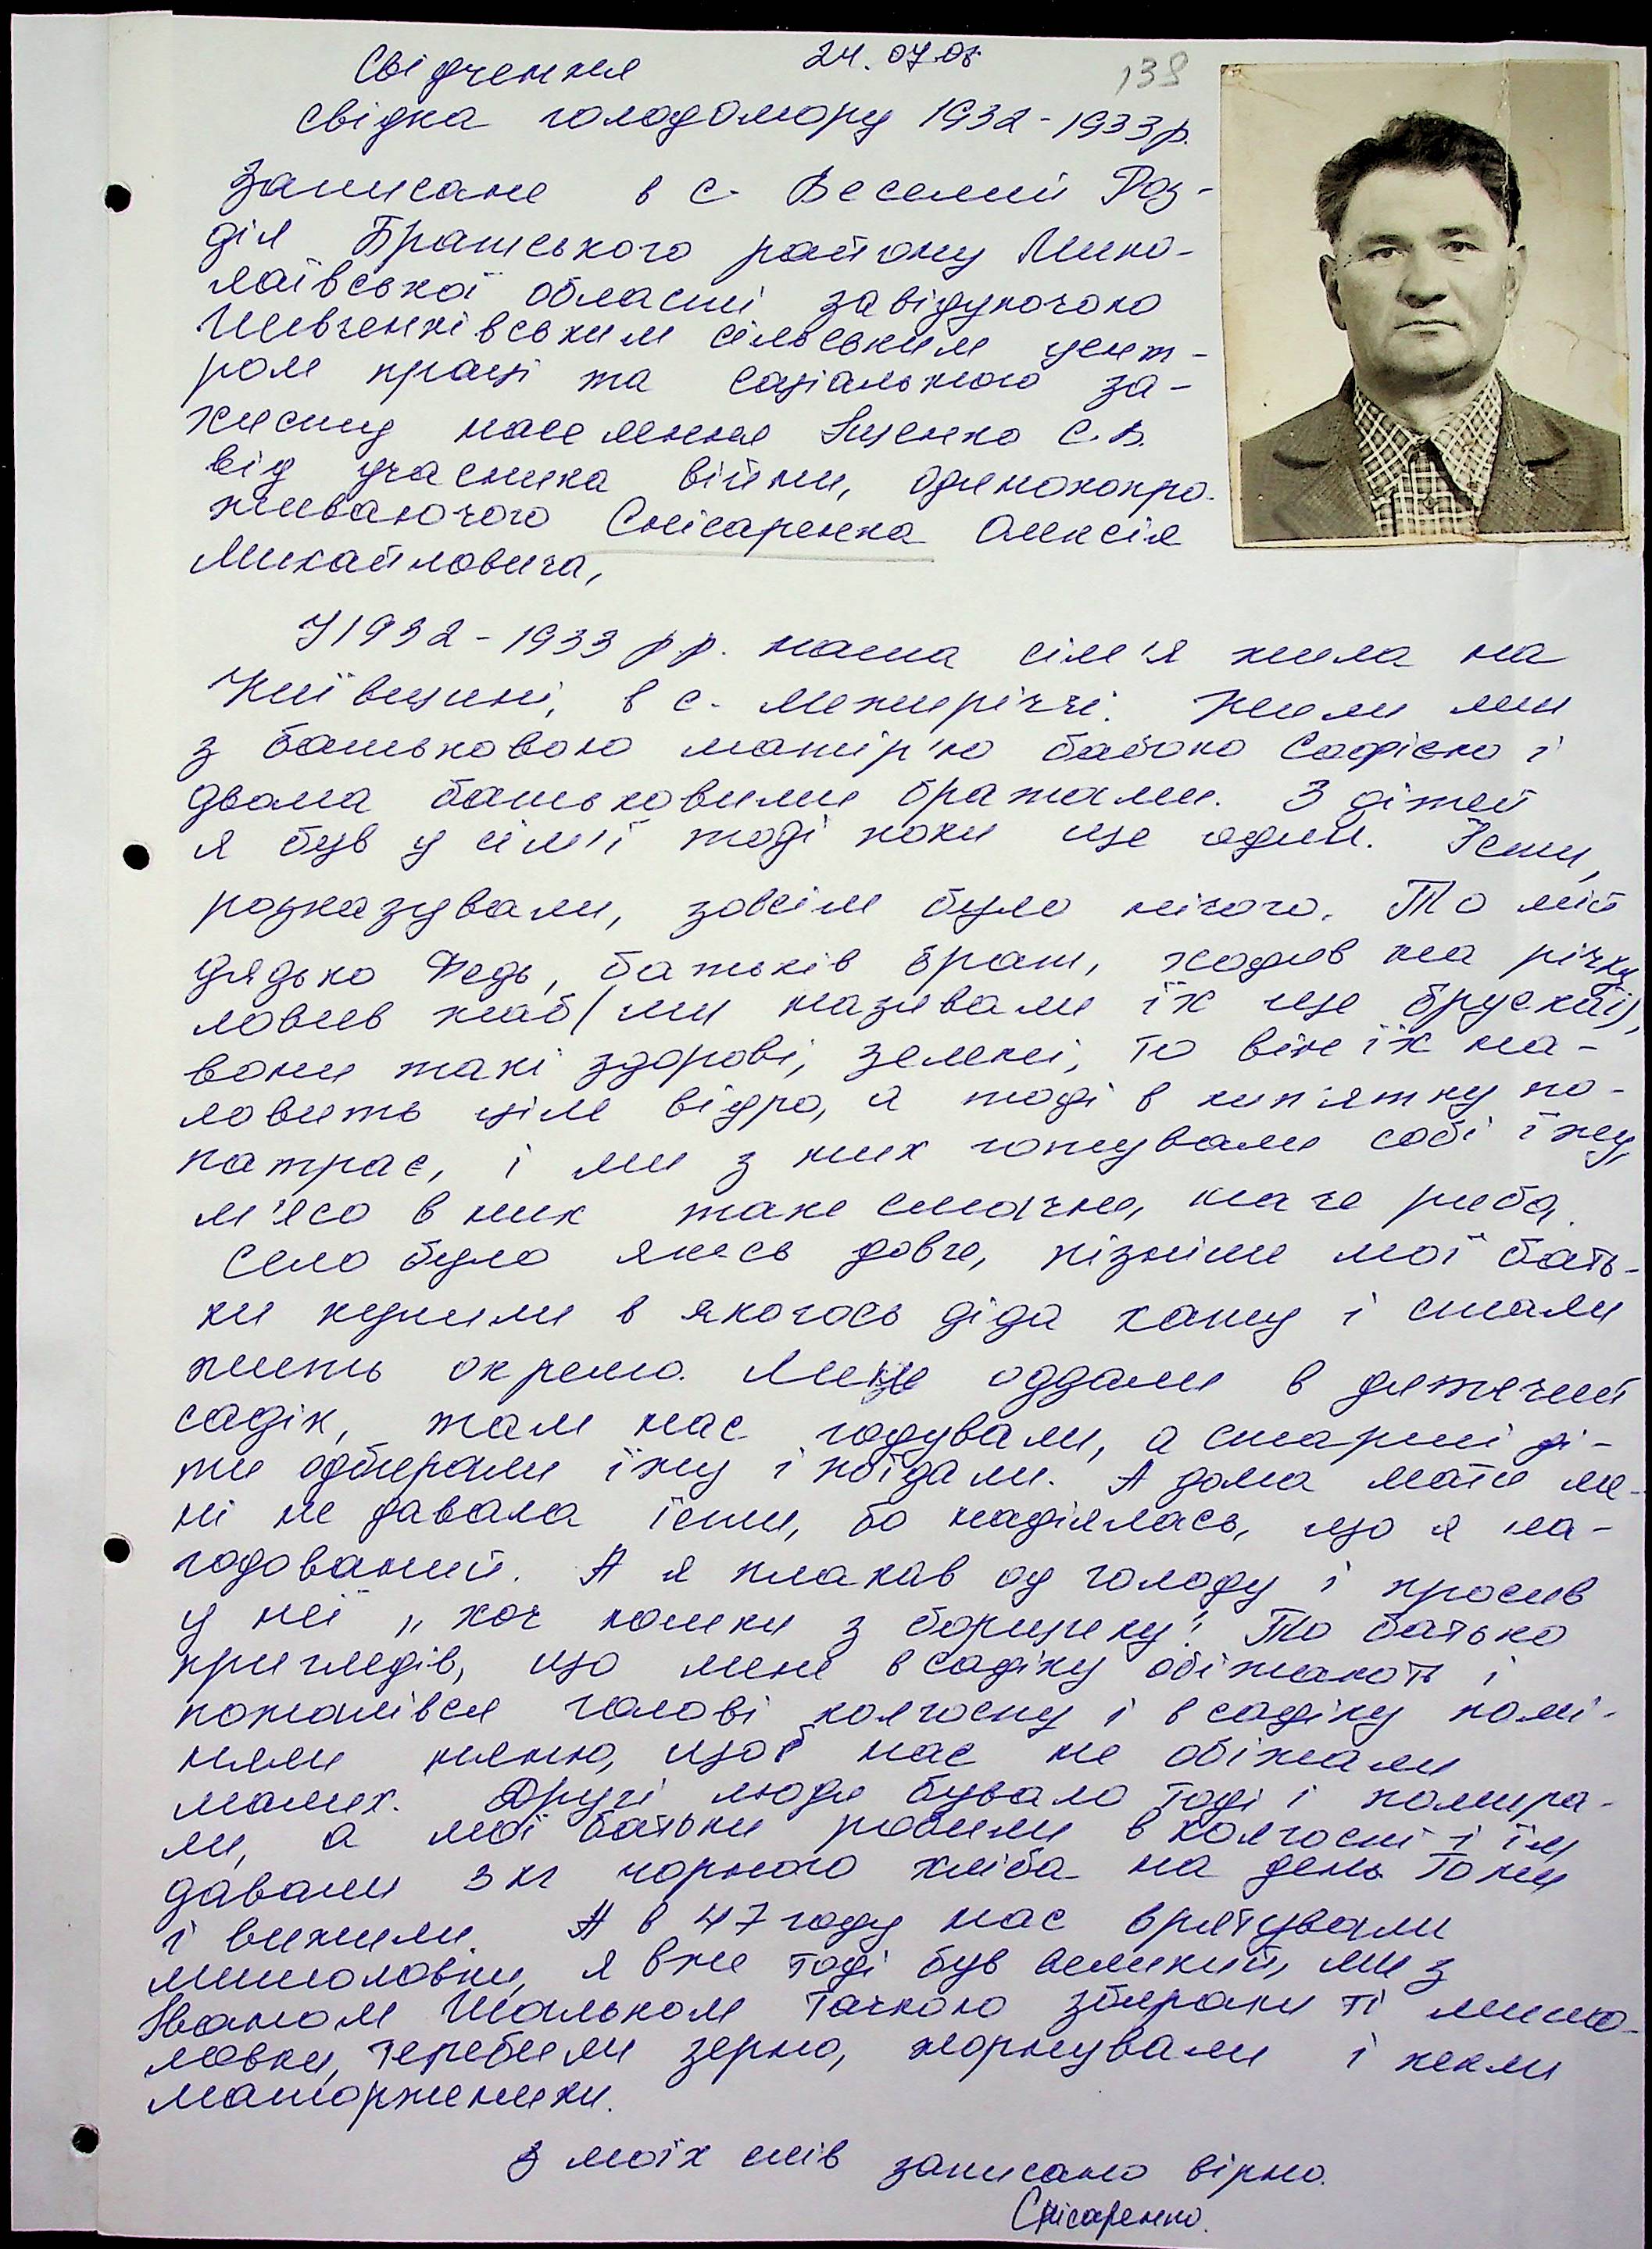 Свідчення 24.07.08 139
свідка голодомору 1932-1933р.
Записане в с. Веселий Роз-
діл Братського району Мико-
лаївської області завідуючою
Шевченківським сільським цент-
ром праці та соціального за-
хисту населення Яценко С.В.
від учасника війни, одинокопро-
живаючого Слісаренка Олексія
Михайловича,
У 1932-1933 р.р. наша сім'я жила на
Київщині, в с. Межиріччі. Жили ми
з батьковою матір'ю бабою Софією і
двома батьковими братами. З дітей
я був у сім'ї тоді поки ще один. Їсти,
розказували, зовсім було нічого. То мій
дядько Федь, батьків брат, ходив на річку
ловив жаб (ми називали їх ще брускаї),
вони такі здорові, зелені, то він їх на-
ловить ціле відро, а тоді в кип'ятку по-
патрає, і ми з них готували собі їжу,
м'ясо в них таке смачне, наче риба.
Село було якесь довге, пізніше мої бать-
ки купили в якогось діда хату і стали
жить окремо. Мене оддали в дитячий
садік, там нас годували, а старші ді-
ти одбирали їжу і поїдали. А дома мати ме-
ні не давала їсти, бо надіялась, що я на-
годований. А я плакав од голоду і просив
у неї „хоч юшки з борщику". То батько
пригледів, що мене в садіку обіжають і
пожалівся голові колгоспу і в садіку помі-
няли няню, щоб нас не обіжали
малих. Другі люди бувало тоді і помира-
ли, а мої батьки робили в колгоспі і їм
давали 3 кг чорного хліба на день. То ми
і вижили. А в 47 году нас врятували
мишоловки, я вже тоді був великий, ми з
Іваном Шальком тачкою збирали ті мишо-
ловки, теребили зерно, жорнували і пекли
маторженики.
З моїх слів записано вірно.
Слісаренко.